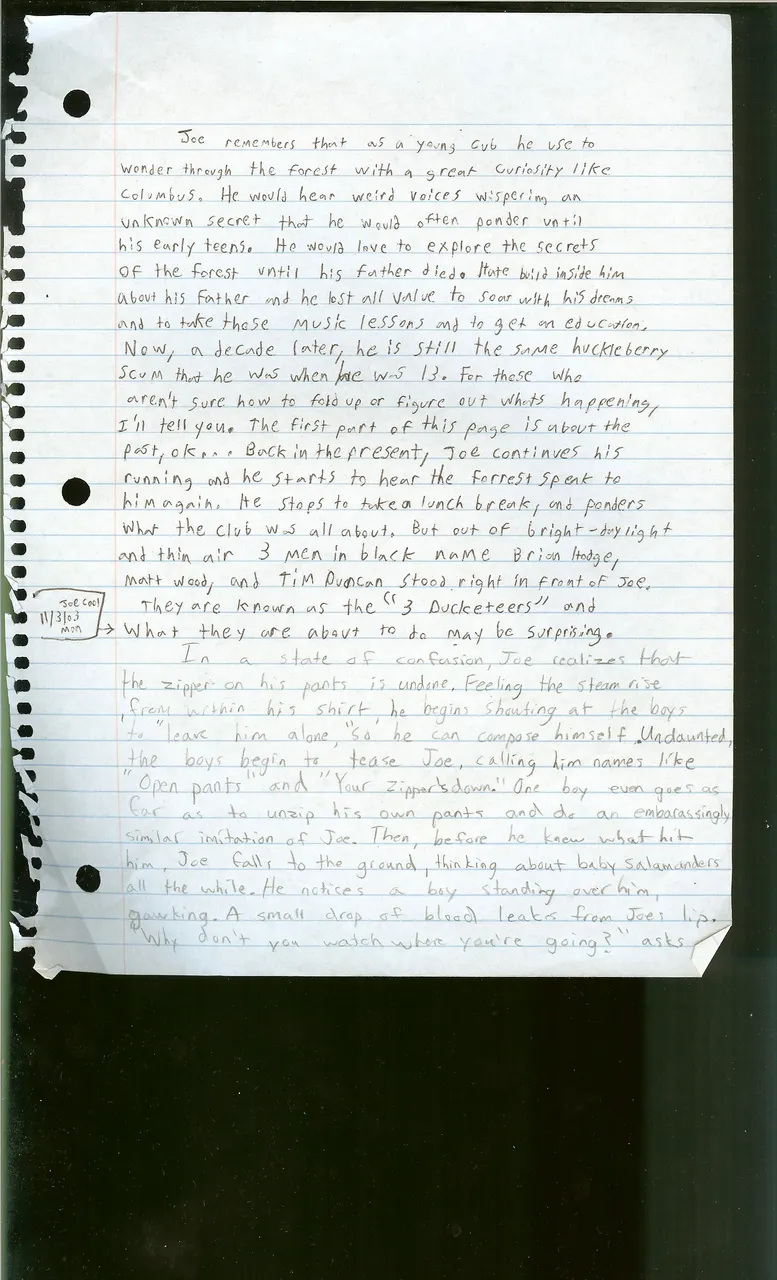 Joe remembers that as a young cub he use to
wonder through the forest with a great curiosity like
Columbus. He would hear weird voices wispering an
unknown secret that he would often ponder until
his early teens. He would love to explore the secrets
of the forest until his father died. Hate build inside him
about his father and he lost all value to soar with his dreams
and to take those music lessons and to get an education.
Now, a decade later, he is still the same huckleberry
scum that he was when he was 13. For those who
aren't sure how to fold up or figure out whats happening,
I'll tell you. The first part of this page is about the
past, ok... Back in the present, Joe continues his
running and he starts to hear the forrest speak to
him again. He stops to take a lunch break, and ponders
what the club was all about. But out of bright-daylight
and thin air 3 men in black name Brian Hodge,
Matt Wood, and Tim Duncan stood right in front of Joe.
They are known as the "3 Ducketeers" and
What they are about to do may be surprising.
Joe Cool
11/3/03
Mon
In a state of confusion, Joe realizes that
the zipper on his pants is undone. Feeling the steam rise
from within his shirt, he begins shouting at the boys
to "leave him alone," so he can compose himself. Undaunted,
the boys begin to tease Joe, calling him names like
"Open pants" and "Your zipper's down." One boy even goes as
far as to unzip his own pants and do an embarassingly
similar imitation of Joe. Then, before he knew what hit
him, Joe falls to the ground, thinking about baby salamanders
all the while. He notices a boy standing over him,
gawking. A small drop of blood leaks from Joes lip.
"Why don't you watch where you're going?" asks